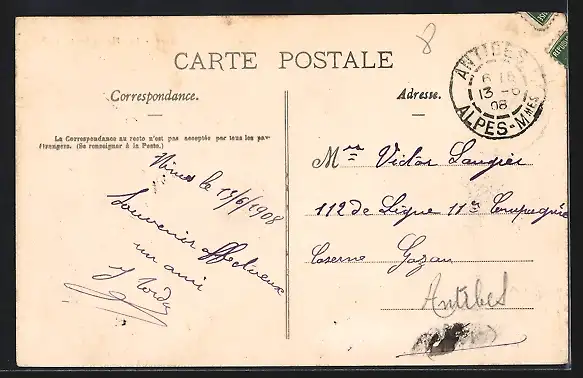 8
CARTE POSTALE
ANTIBES
6 15
13 -6
08
ALPES-MMES
Correspondance.
Adresse.
La Correspondance au recto n'est pas acceptée par tous les pays
étrangers. (Se renseigner à la Poste.)
le 13/6/1908
Souvenir affectueux
un ami
Mr Victor Laugier
112 de Ligne 11e Compagnie
Caserne Gazan
Antibes